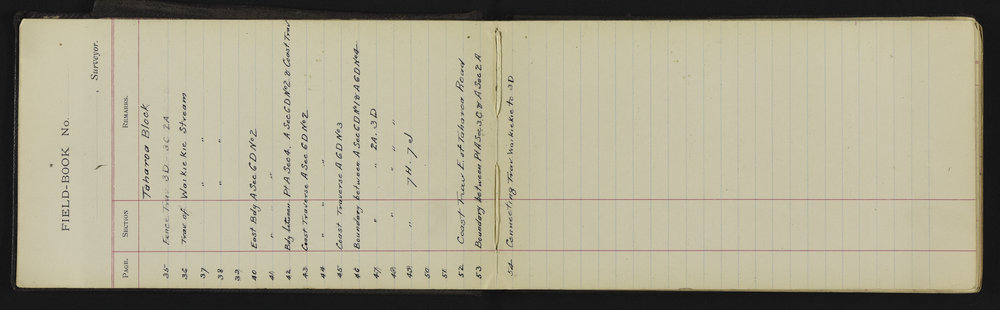 FIELD-BOOK No.
Surveyor.
PAGE. SECTION REMARKS.
Taharoa Block
35 Fence Trav 3D - 3C 2A
36 Trav of Waikiekie Stream
37 " "
38 " "
39
40 East Bdy A Sec 6D No 2
41 " "
42 Bdy between Pt A Sec 4. A Sec 6D No 2 & Coast Trav
43 Coast Traverse A Sec 6D No 2
44 " "
45 Coast Traverse A 6D No 3
46 Boundary between A Sec 6D No 1 & A 6D No 4
47 " " 2A. 3D
48 " " "
49 " 7H. 7J
50
51
52 Coast Trav E. of Taharoa Road
53 Boundary between Pt A Sec 3C & A Sec 2A
54 Connecting Trav Waikiekie to 3D